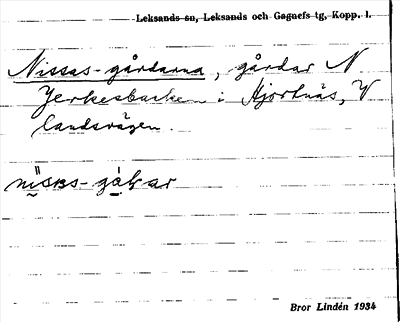 Leksands sn, Leksands och Gagnefs tg, Kopp. l.
Nissas-gårdarna, gårdar N
Jerkesbacken i Hjortnäs, V
landsvägen.
Bror Lindén 1934